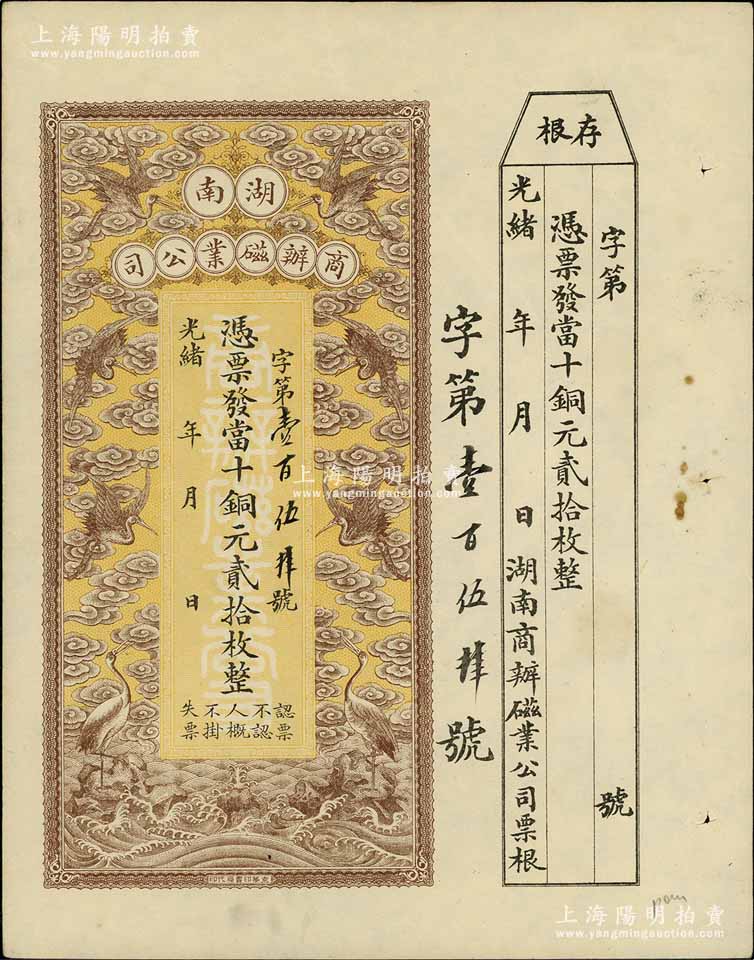 上海陽明拍賣
www.yangmingauction.com
存根
字第 號
憑票發當十銅元貳拾枚整
光緒 年 月 日湖南商辦磁業公司票根
字第壹百伍肆號
湖南
商辦磁業公司
字第壹百伍肆號
憑票發當十銅元貳拾枚整
光緒 年 月 日
認票不認人概不掛失票
上海陽明拍賣
www.yangmingauction.com
上海陽明拍賣
www.yangmingauction.com